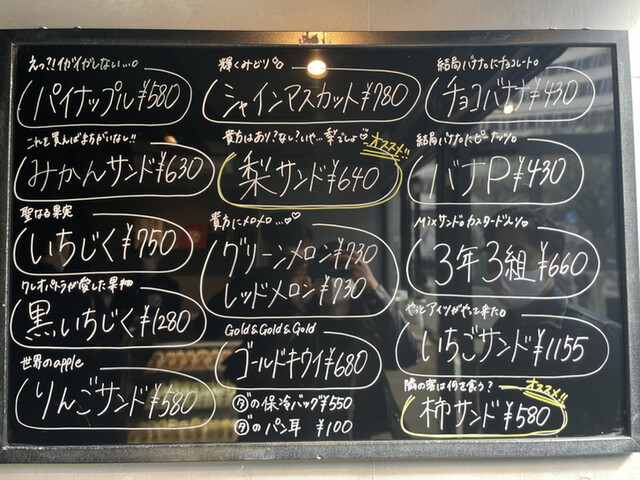 えっ?!イガイガしない…。
パイナップル¥580
これを買えばまちがいなし!!
みかんサンド¥630
聖なる果実
いちじく¥750
クレオパトラが愛した果物
黒いちじく¥1280
世界のapple
りんごサンド¥580
輝くみどり
シャインマスカット¥980
貴方はあり?なし?いや…梨でしょ♡
オススメ!!
梨サンド¥640
貴方にメロメロ…♡♡
グリーンメロン¥930
レッドメロン¥930
Gold&Gold&Gold
ゴールドキウイ¥680
ダの保冷バッグ¥550
ダのパン耳 ¥100
結局バナナにチョコレート。
チョコバナナ¥430
結局バナナにピーナッツ。
バナP¥430
Mixサンド。カスタードルソ。
3年3組¥660
やっとアイツがやって来た。
いちごサンド¥1155
隣の客は何を食う?
オススメ!!
柿サンド¥580